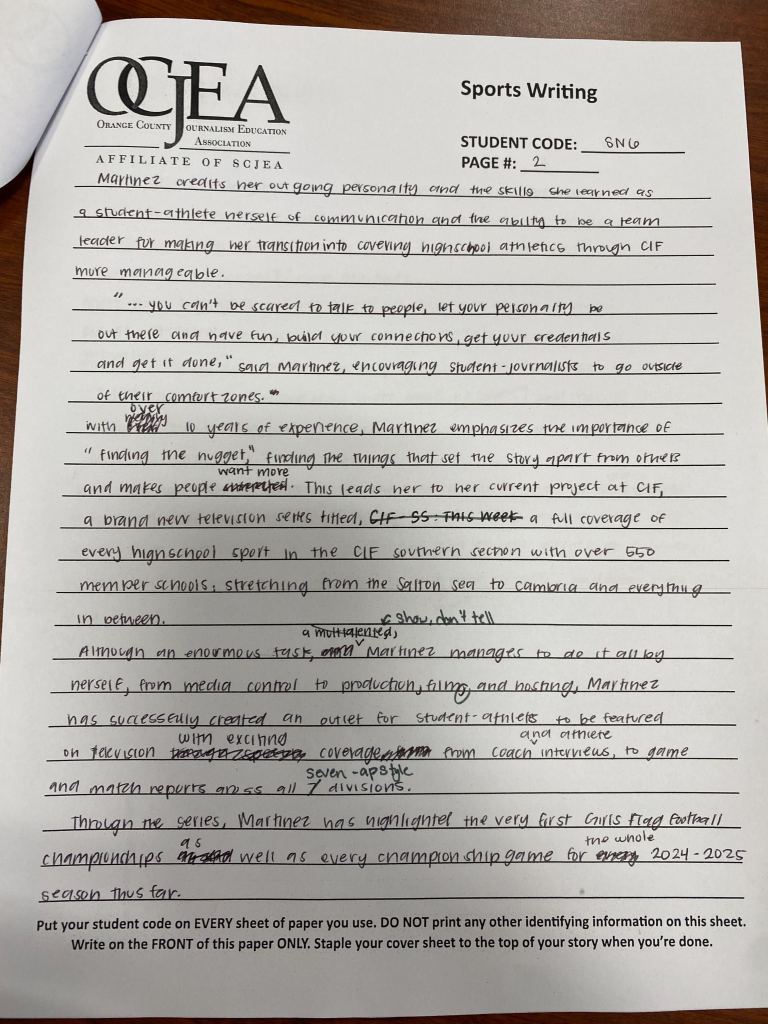 OCJEA
ORANGE COUNTY JOURNALISM EDUCATION
ASSOCIATION
AFFILIATE OF SCJEA
Sports Writing
STUDENT CODE: SN6
PAGE #: 2
Martinez credits her outgoing personality and the skills she learned as
a student-athlete herself of communication and the ability to be a team
leader for making her transition into covering highschool athletics through CIF
more manageable.
"... you can't be scared to talk to people, let your personality be
out there and have fun, build your connections, get your credentials
and get it done," said Martinez, encouraging student-journalists to go outside
of their comfort zones."
over
with 10 years of experience, Martinez emphasizes the importance of
"finding the nugget," finding the things that set the story apart from others
want more
and makes people interested. This leads her to her current project at CIF,
a brand new television series titled, CIF-SS: This Week a full coverage of
every highschool sport in the CIF southern section with over 550
member schools, stretching from the Salton sea to Cambria and everything
in between.
show, don't tell
a multitalented,
Although an enormous task, Martinez manages to do it all by
herself, from media control to production, filming, and hosting, Martinez
has successfully created an outlet for student-athletes to be featured
with exciting and athlete
on television coverage from coach interviews, to game
seven - ap style
and match reports aross all 7 divisions.
Through the series, Martinez has highlighted the very first Girls Flag Football
as the whole
championchips well as every championship game for every 2024-2025
season thus far.
Put your student code on EVERY sheet of paper you use. DO NOT print any other identifying information on this sheet.
Write on the FRONT of this paper ONLY. Staple your cover sheet to the top of your story when you're done.